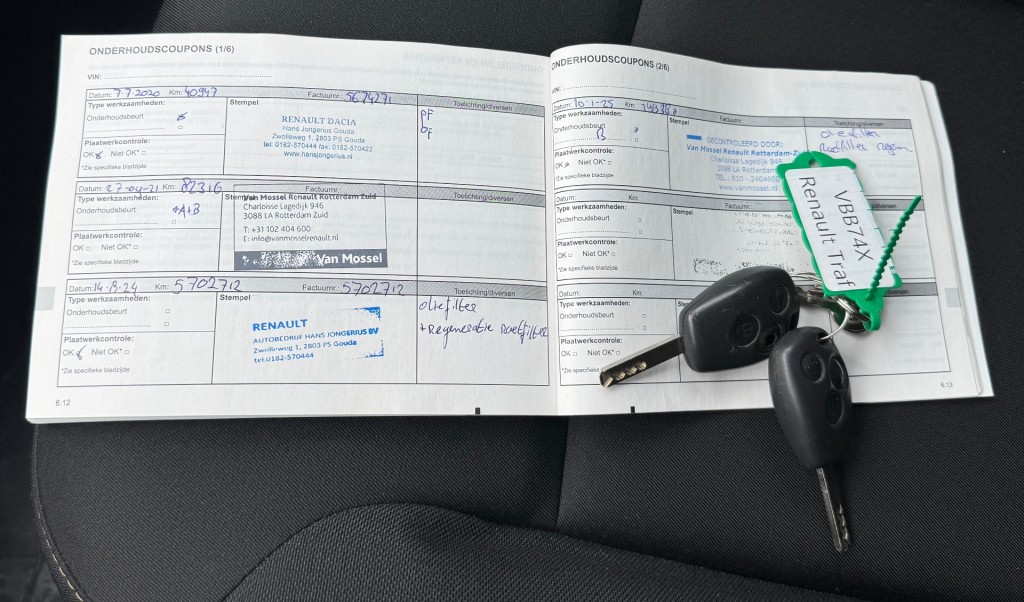 ONDERHOUDSCOUPONS (1/6)
VIN:
Datum: 7-7-2020 Km: 40947 Factuurnr.: 5674271 Toelichting/diversen
Type werkzaamheden: Stempel
Onderhoudsbeurt
Plaatwerkcontrole:
OK Niet OK*
*Zie specifieke bladzijde
RENAULT DACIA
Hans Jongerius Gouda
Zwolleweg 1, 2803 PS Gouda
tel: 0182-570444 fax: 0182-570422
www.hansjongerius.nl
PF
OF
Datum: 27-04-21 Km: 82316 Factuurnr.: Toelichting/diversen
Type werkzaamheden: Stempel
Onderhoudsbeurt A+B
Plaatwerkcontrole:
OK Niet OK*
*Zie specifieke bladzijde
Van Mossel Renault Rotterdam Zuid
Charloisse Lagedijk 946
3088 LA Rotterdam Zuid
T: +31 102 404 600
E: info@vanmosselrenault.nl
Van Mossel
Datum: 14-8-24 Km: 5702712 Factuurnr.: 5702712 Toelichting/diversen
Type werkzaamheden: Stempel
Onderhoudsbeurt
Plaatwerkcontrole:
OK Niet OK*
*Zie specifieke bladzijde
RENAULT
AUTOBEDRIJF HANS JONGERIUS BV
Zwolleweg 1, 2803 PS Gouda
tel.0182-570444
oliefilter
+ Regeneratie Roetfilter
6.12
ONDERHOUDSCOUPONS (2/6)
VIN:
Datum: 10-1-25 Km: Factuurnr.: Toelichting/diversen
Type werkzaamheden: Stempel
Onderhoudsbeurt
B
Plaatwerkcontrole:
OK Niet OK*
*Zie specifieke bladzijde
GECONTROLEERD DOOR:
Van Mossel Renault Rotterdam-Zuid
Charloisse Lagedijk 946
3088 LA Rotterdam
TEL.: 010 - 2404600
www.vanmossel.nl
oliefilter
Roetfilter regen
Datum: Km:
Type werkzaamheden:
Onderhoudsbeurt
Plaatwerkcontrole:
OK Niet OK*
*Zie specifieke bladzijde
Datum: Km:
Type werkzaamheden:
Onderhoudsbeurt
Plaatwerkcontrole:
OK Niet OK*
*Zie specifieke
6.13
VBB74X
Renault Traf